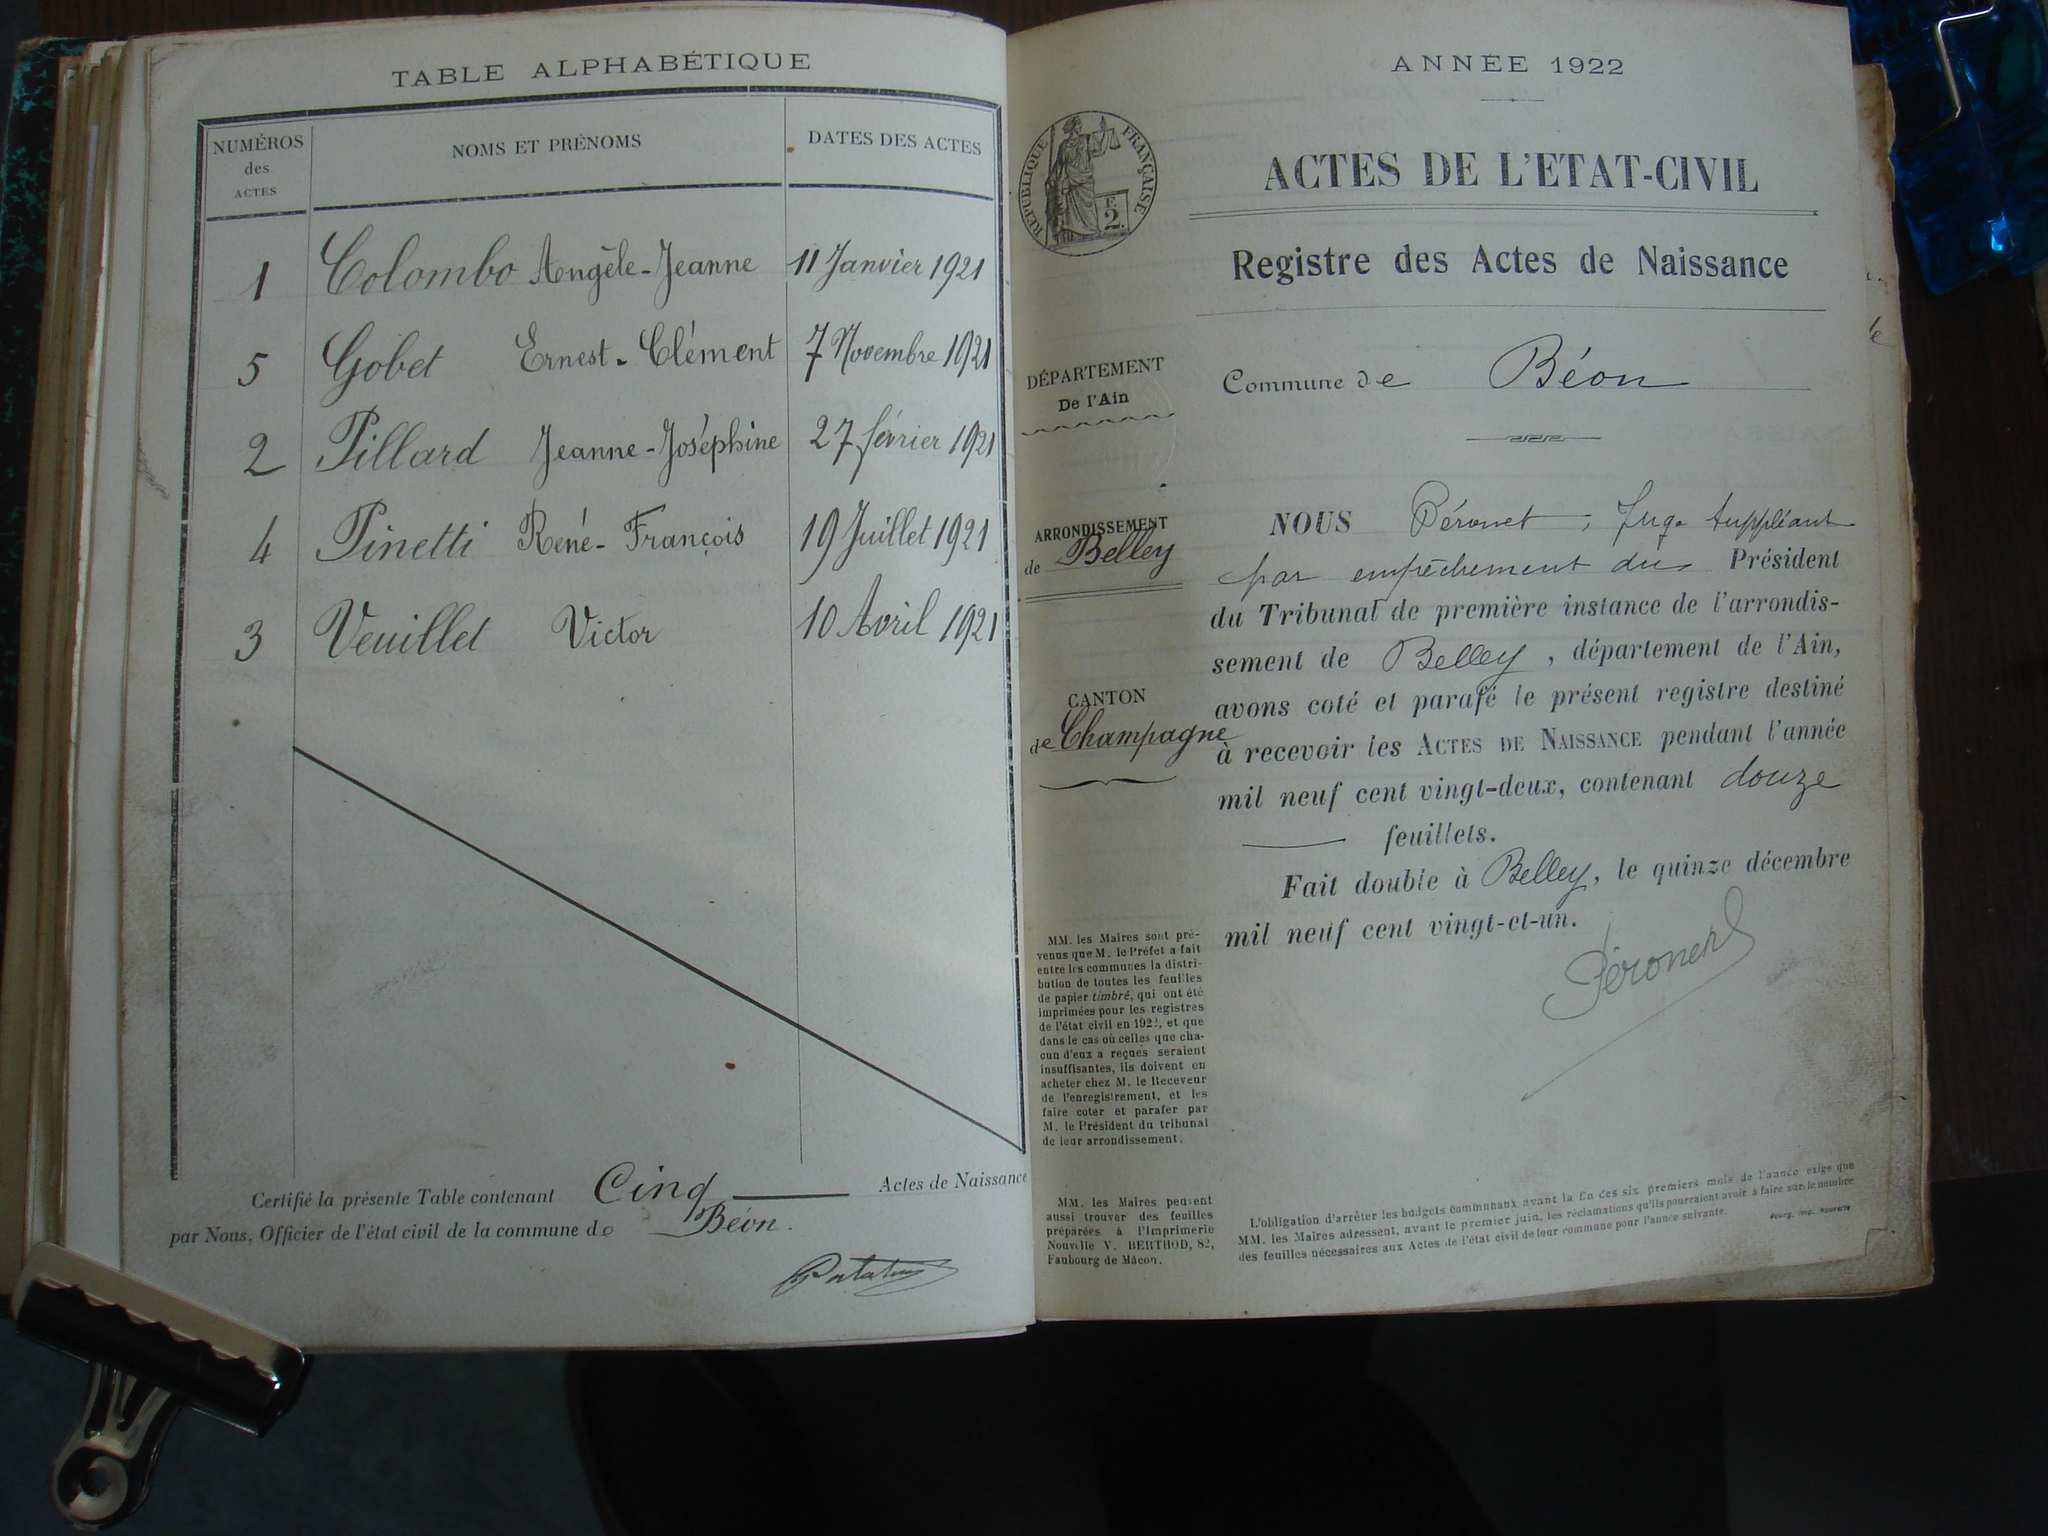 TABLE ALPHABÉTIQUE
NUMÉROS des ACTES NOMS ET PRÉNOMS DATES DES ACTES
1 Colombo Angèle-Jeanne 11 Janvier 1921
5 Gobet Ernest-Clément 7 Novembre 1921
2 Pillard Jeanne-Joséphine 27 février 1921
4 Pinetti René-François 19 Juillet 1921
3 Veuillet Victor 10 Avril 1921
Certifié la présente Table contenant Cinq Actes de Naissance
par Nous, Officier de l'état civil de la commune de Béon.
ANNÉE 1922
RÉPUBLIQUE FRANÇAISE
F.
2.
ACTES DE L'ETAT-CIVIL
Registre des Actes de Naissance
DÉPARTEMENT
De l'Ain
Commune de Béon
ARRONDISSEMENT
de Belley
CANTON
de Champagne
NOUS Péronet, Juge suppléant
par empêchement du Président
du Tribunal de première instance de l'arrondis-
sement de Belley, département de l'Ain,
avons coté et parafé le présent registre destiné
à recevoir les ACTES DE NAISSANCE pendant l'année
mil neuf cent vingt-deux, contenant douze
feuillets.
Fait double à Belley, le quinze décembre
mil neuf cent vingt-et-un.
Péronet
MM. les Maires sont pré-
venus que M. le Préfet a fait
entre les communes la distri-
bution de toutes les feuilles
de papier timbré, qui ont été
imprimées pour les registres
de l'état civil en 1922, et que
dans le cas où celles que cha-
cun d'eux a reçues seraient
insuffisantes, ils doivent en
acheter chez M. le Receveur
de l'enregistrement, et les
faire coter et parafer par
M. le Président du tribunal
de leur arrondissement.
MM. les Maires peuvent
aussi trouver des feuilles
préparées à l'Imprimerie
Nouvelle V. BERTHOD, 82,
Faubourg de Mâcon.
L'obligation d'arrêter les budgets communaux avant la fin des six premiers mois de l'année exige que
MM. les Maires adressent, avant le premier juin, les réclamations qu'ils pourraient avoir à faire sur le nombre
des feuilles nécessaires aux Actes de l'état civil de leur commune pour l'année suivante.
Bourg, imp. Nouvelle